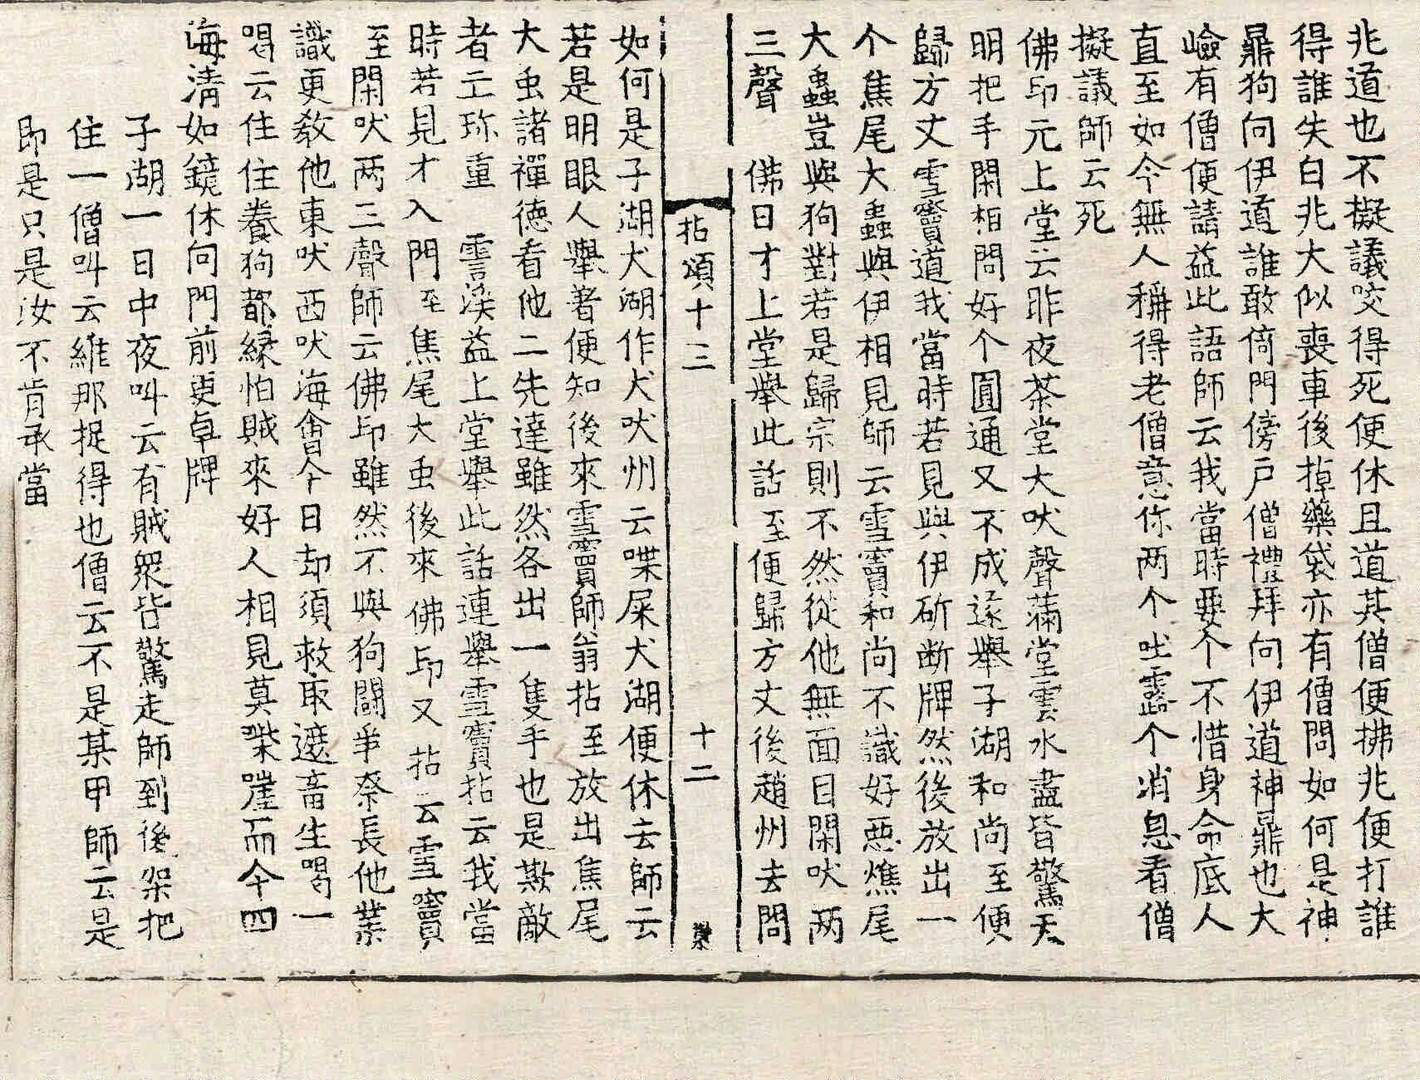 兆道也不擬議咬得死便休且道其僧便拂兆便打誰
得誰失白兆大似喪車後掉藥袋亦有僧問如何是神
鼎狗向伊道誰敢倚門傍戶僧禮拜向伊道神鼎也大
嶮有僧便請益此語師云我當時要个不惜身命底人
直至如今無人稱得老僧意你两个吐露个消息看僧
擬議師云死
佛印元上堂云昨夜茶堂犬吠聲滿堂雲水盡皆驚天
明把手閑相問好个圓通又不成遂舉子湖和尚至便
歸方丈雪竇道我當時若見與伊斫断牌然後放出一
个焦尾大蟲與伊相見師云雪竇和尚不識好惡燋尾
大蟲豈與狗對若是歸宗則不然從他無面目閑吠两
三聲　佛日才上堂舉此話至便歸方丈後趙州去問
拈頌十三　十二
如何是子湖犬湖作犬吠州云喋屎犬湖便休去師云
若是明眼人舉著便知後來雪竇師翁拈至放出焦尾
大虫諸禪德看他二先達雖然各出一隻手也是欺敵
者亡珎重　雲溪益上堂舉此話連舉雪竇拈云我當
時若見才入門至焦尾大虫後來佛印又拈云雪竇
至閑吠两三聲師云佛印雖然不與狗鬪爭奈長他業
識更教他東吠西吠海會今日却須救取遮畜生喝一
喝云住住養狗都緣怕賊來好人相見莫喍嘊而今四
海清如鏡休向門前更卓牌
子湖一日中夜叫云有賊眾皆驚走師到後架把
住一僧叫云維那捉得也僧云不是某甲師云是
即是只是汝不肯承當